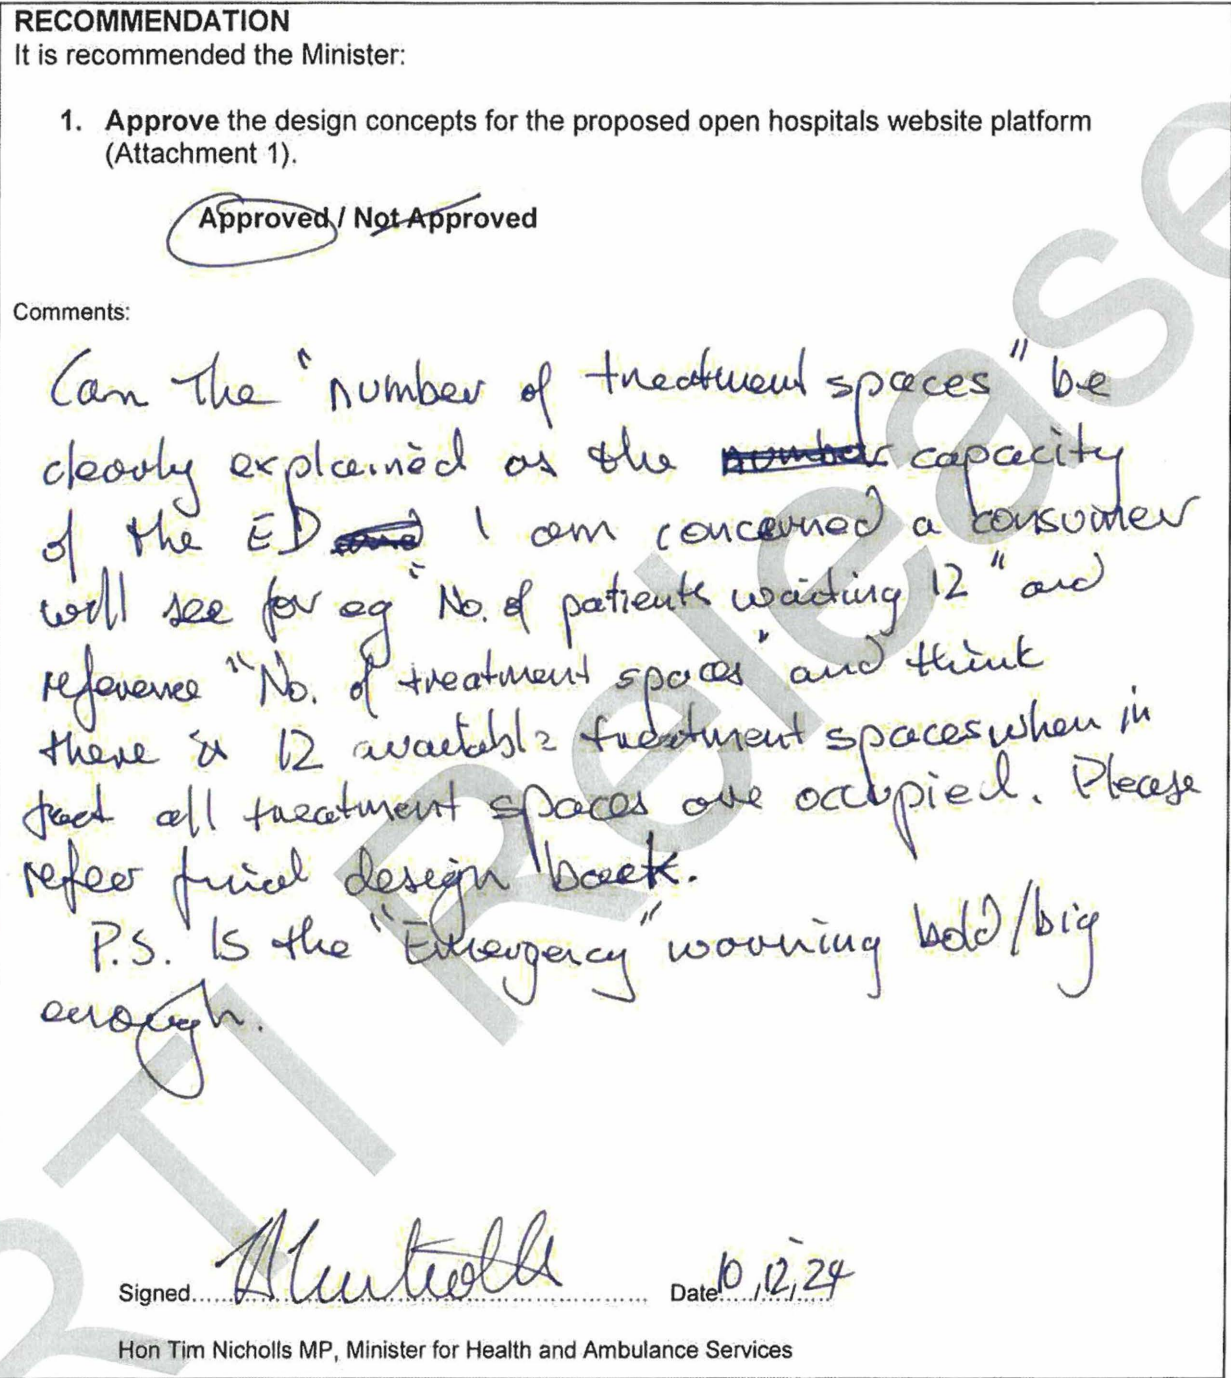 RECOMMENDATION
It is recommended the Minister:
1. Approve the design concepts for the proposed open hospitals website platform
(Attachment 1).
Approved / Not Approved
Comments:
Can the "number of treatment spaces" be
clearly explained as the number capacity
of the ED and I am concerned a consumer
will see for eg "No. of patients waiting 12" and
reference "No. of treatment spaces" and think
there is 12 available treatment spaces when in
fact all treatment spaces are occupied. Please
refer final design back.
P.S. Is the "Emergency" warning bold/big
enough.
Signed
Date 10/12/24
Hon Tim Nicholls MP, Minister for Health and Ambulance Services
RTI Release